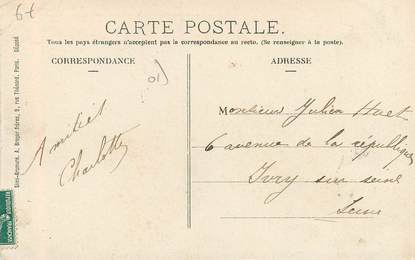 6€
CARTE POSTALE.
Tous les pays étrangers n'acceptent pas la correspondance au recto. (Se renseigner à la poste).
CORRESPONDANCE
ADRESSE
01)
Amitiés
Charlotte
Monsieur Julien Huet
6 avenue de la république
Ivry sur seine
Seine
A. Breger frères, 9, rue Thénard, Paris.